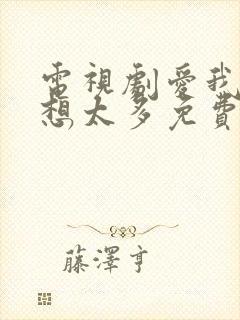 電視劇愛我
想太多免費
藤澤亨